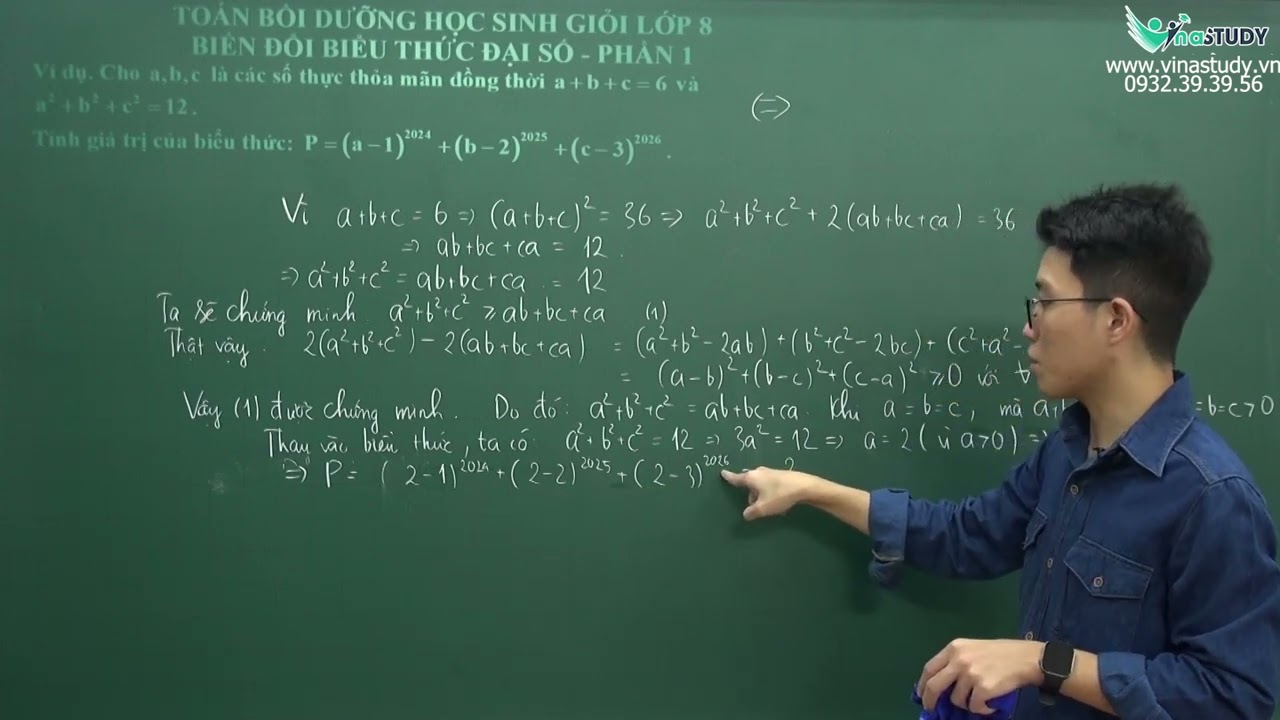 TOÁN BỒI DƯỠNG HỌC SINH GIỎI LỚP 8
BIẾN ĐỔI BIỂU THỨC ĐẠI SỐ - PHẦN 1
Ví dụ. Cho a,b,c là các số thực thỏa mãn đồng thời a + b + c = 6 và
a² + b² + c² = 12.
Tính giá trị của biểu thức: P = (a − 1)²⁰²⁴ + (b − 2)²⁰²⁵ + (c − 3)²⁰²⁶.
VinaSTUDY
www.vinastudy.vn
0932.39.39.56
(=)
Vì a+b+c = 6 => (a+b+c)² = 36 => a²+b²+c² + 2(ab+bc+ca) = 36
=> ab+bc+ca = 12.
=> a²+b²+c² = ab+bc+ca = 12
Ta sẽ chứng minh a²+b²+c² ≥ ab+bc+ca (1)
Thật vậy. 2(a²+b²+c²) − 2(ab+bc+ca) = (a²+b²−2ab) + (b²+c²−2bc) + (c²+a²−
= (a−b)²+(b−c)²+(c−a)² ≥ 0 với ∀
Vậy (1) được chứng minh. Do đó: a²+b²+c² = ab+bc+ca khi a=b=c, mà a+b =b=c>0
Thay vào biểu thức, ta có: a²+b²+c² = 12 => 3a² = 12 => a = 2 (vì a>0) =>
=> P = (2−1)²⁰²⁴ + (2−2)²⁰²⁵ + (2−3)²⁰²⁶ = 2